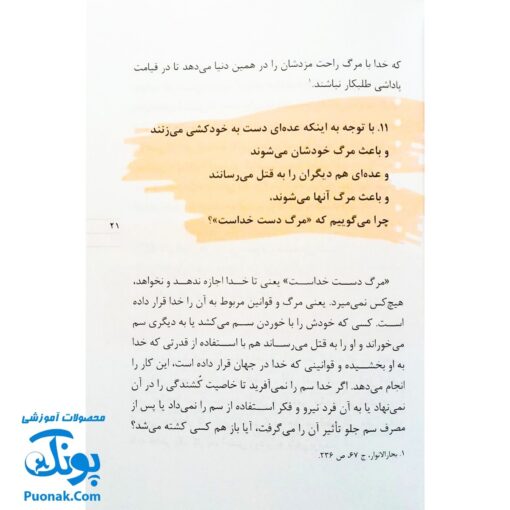 که خدا با مرگ راحت مزدشان را در همین دنیا می‌دهد تا در قیامت
پاداشی طلبکار نباشند.۱
۱۱. با توجه به اینکه عده‌ای دست به خودکشی می‌زنند
و باعث مرگ خودشان می‌شوند
و عده‌ای هم دیگران را به قتل می‌رسانند
و باعث مرگ آنها می‌شوند،
چرا می‌گوییم که «مرگ دست خداست»؟
۲۱
«مرگ دست خداست» یعنی تا خدا اجازه ندهد و نخواهد،
هیچ‌کس نمی‌میرد. یعنی مرگ و قوانین مربوط به آن را خدا قرار داده
است. کسی که خودش را با خوردن سم می‌کشد یا به دیگری سم
می‌خوراند و او را به قتل می‌رساند هم با استفاده از قدرتی که خدا
به او بخشیده و قوانینی که خدا در جهان قرار داده است، این کار را
انجام می‌دهد. اگر خدا سم را نمی‌آفرید تا خاصیت کُشندگی را در آن
نمی‌نهاد یا به آن فرد نیرو و فکر استفاده از سم را نمی‌داد یا پس از
مصرف سم جلو تأثیر آن را می‌گرفت، آیا باز هم کسی کشته می‌شد؟
۱. بحارالانوار، ج ۶۷، ص ۲۳۶.
محصولات آموزشی
پونک
Puonak.Com